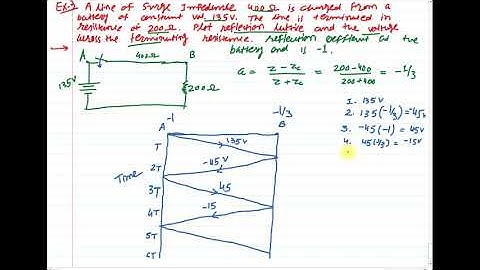 Ex-2 A line of Surge Impedance 400Ω is charged from a
battery of constant vol. 135V. The line is terminated in
resistance of 200Ω. Plot reflection lattice and the voltage
across the terminating resistance. reflection coefficient at the
battery end is -1.
A 400Ω B
135V
200Ω
a = Z - Zc / Z + Zc = 200-400 / 200+400 = -1/3
-1 -1/3
A B
T
2T
3T
4T
5T
6T
Time
135V
-45V
45
-15
1. 135V
2. 135(-1/3) = -45V
3. -45(-1) = 45V
4. 45(-1/3) = -15V